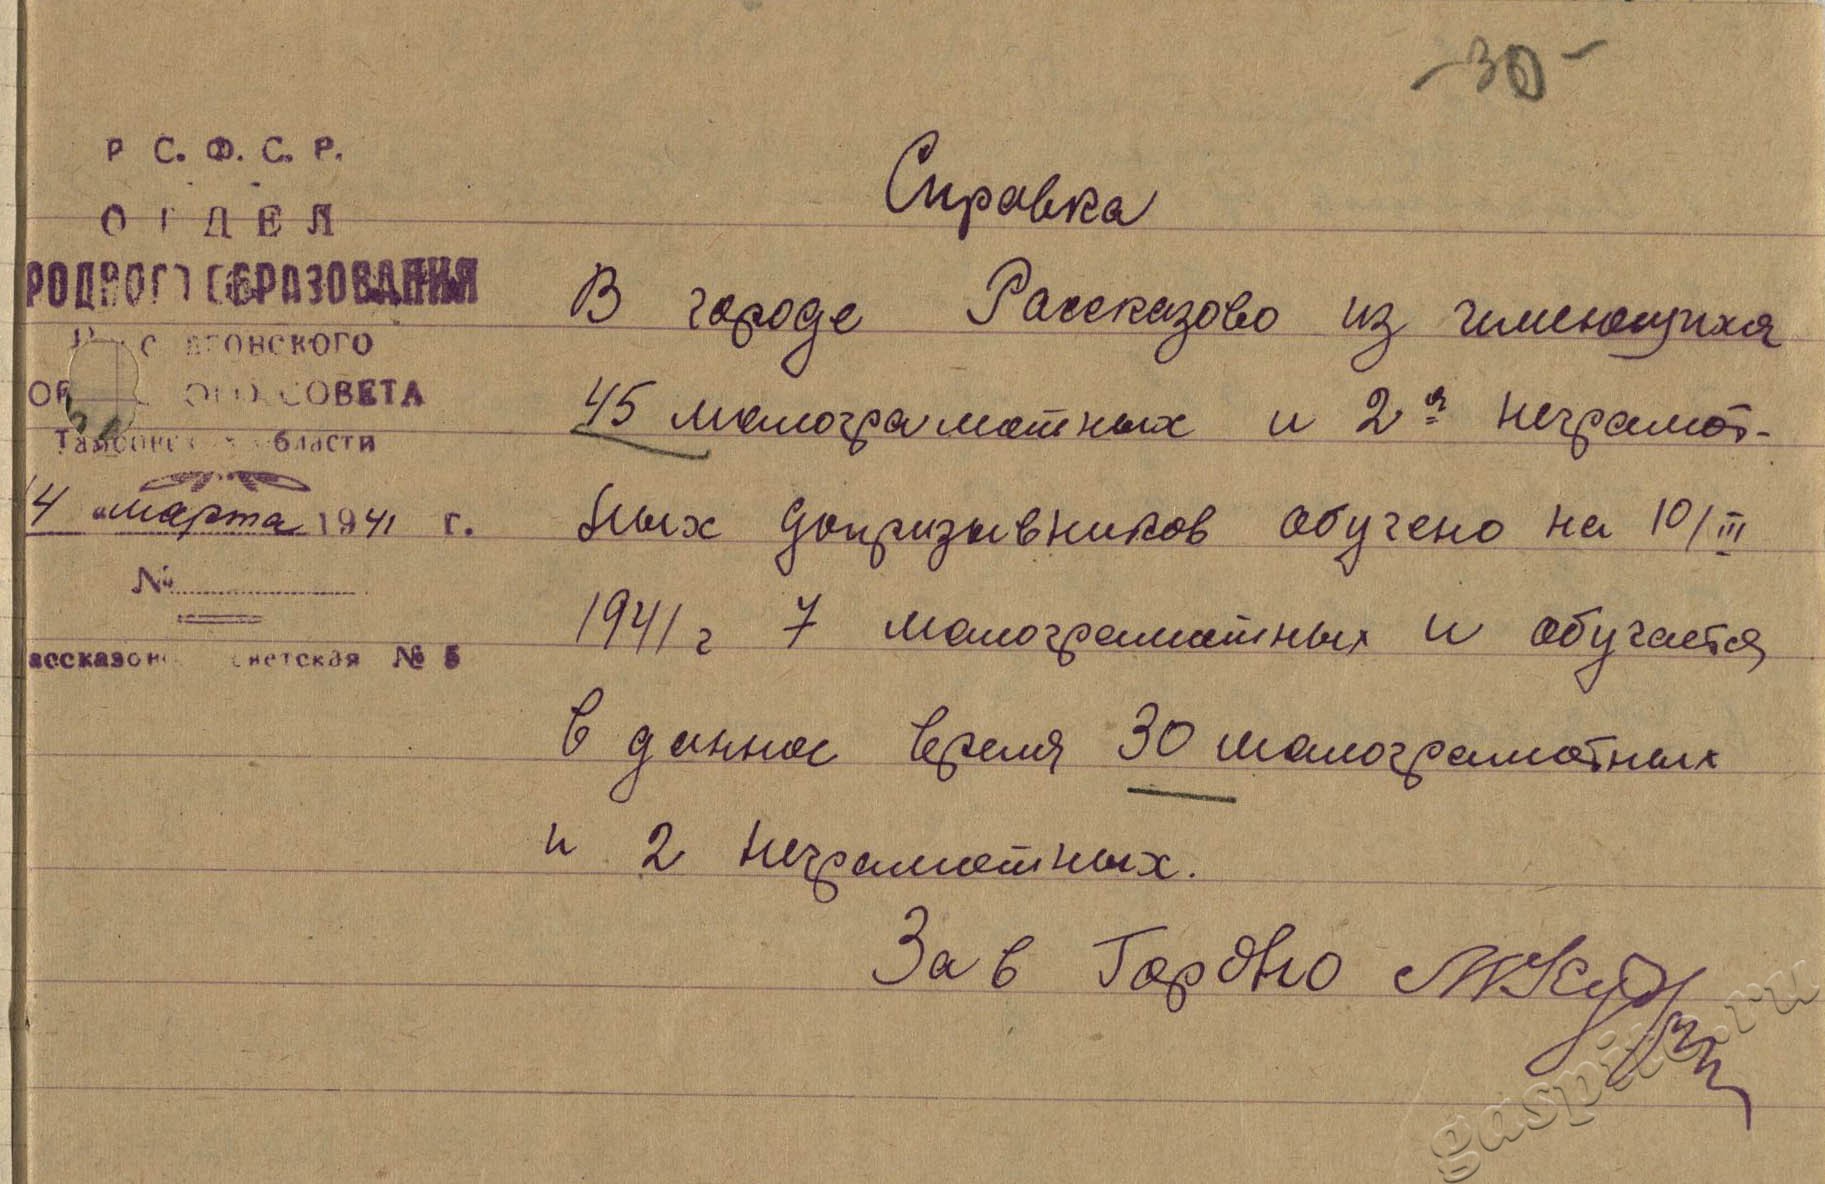 -30-
Р С. Ф. С. Р.
ОТДЕЛ
РОДНОГО ОБРАЗОВАНИЯ
СОВЕТА
Тамбовской области
14 "марта 1941 г.
№
№ 5
Справка
В городе Рассказово из имеющихся
45 малограмотных и 2х неграмот-
ных допризывников обучено на 10/III
1941 г 7 малограмотных и обучается
в данное время 30 малограмотных
и 2 неграмотных.
Зав ГорОНО
gaspito.ru